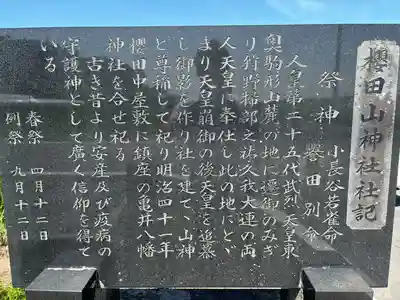 櫻田山神社社記
祭神 小長谷若雀命
誉田別命
人皇第二十五代武烈天皇東
奥駒形山麓の地に遷御のみぎ
り狩野柿部之祷久我大連の両
人天皇に奉仕し此の地にとゞ
まり天皇崩御の後天皇を追慕
し御影を作り社を建て、山神
と尊稱して祀り明治四十一年
櫻田中屋敷に鎮座の亀井八幡
神社を合せ祀る
古き昔より安産及び疫病の
守護神として廣く信仰を得て
いる
春祭 四月十二日
例祭 九月十二日